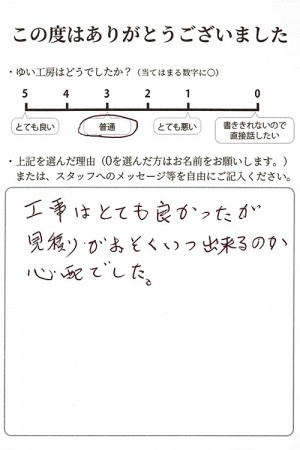 この度はありがとうございました
・ゆい工房はどうでしたか？（当てはまる数字に○）
5 4 3 2 1 0
とても良い 普通 とても悪い 書ききれないので
直接話したい
・上記を選んだ理由（0を選んだ方はお名前をお願いします。）
または、スタッフへのメッセージ等を自由にご記入ください。
工事はとても良かったが
見積りがおそくいつ出来るのか
心配でした。